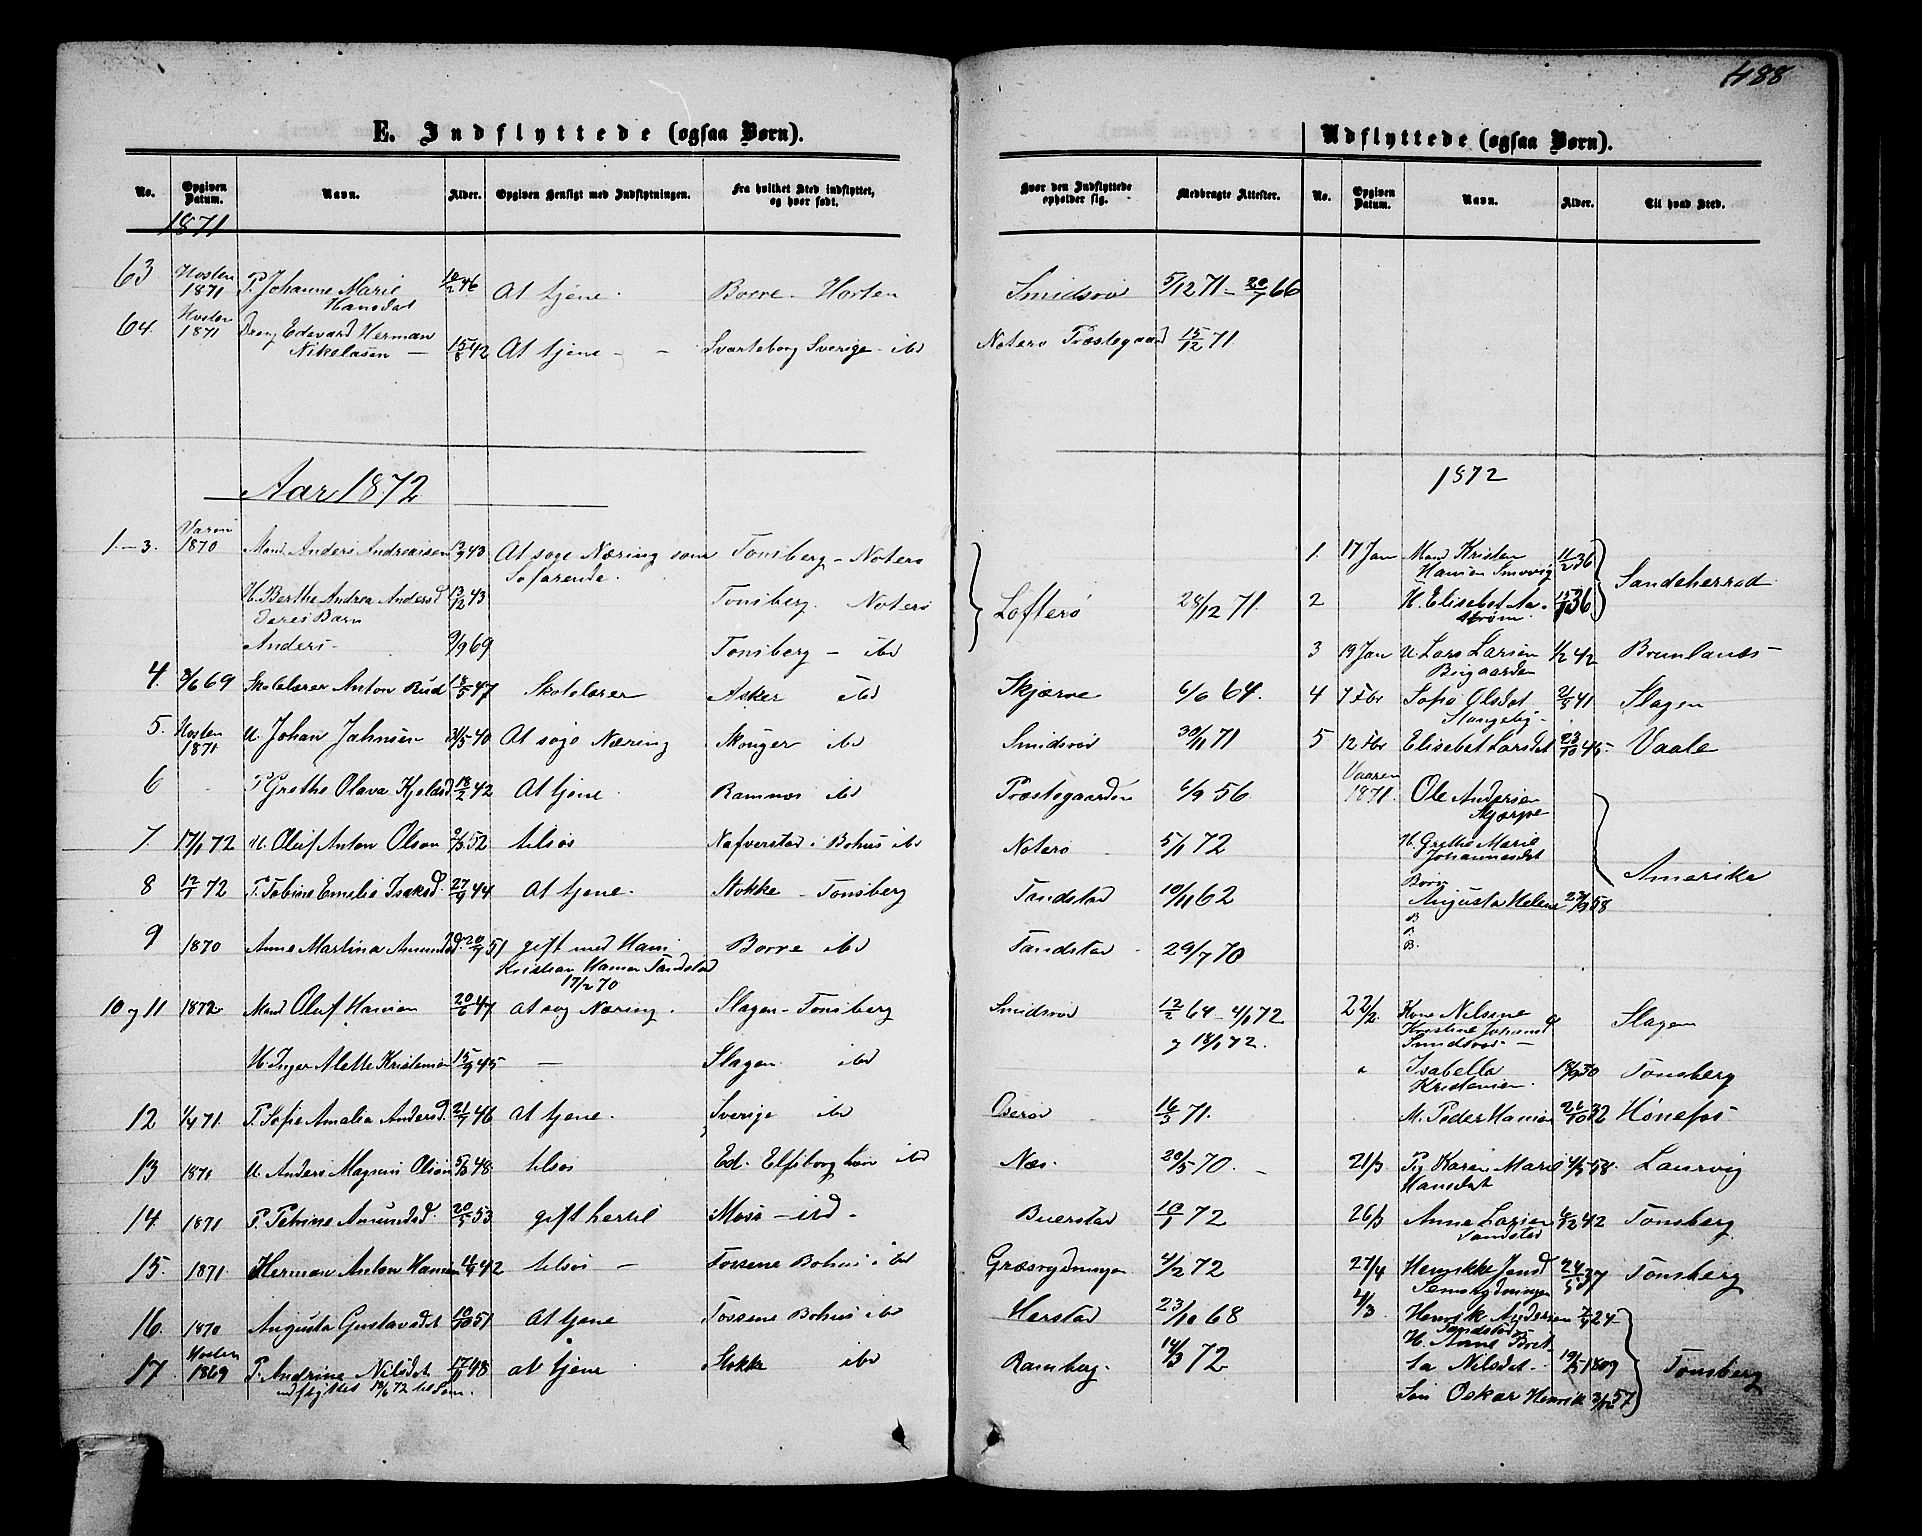 488
E. Indflyttede (ogsaa Børn).
No. Opgiven Datum. Navn. Alder. Opgiven Hensigt med Indflytningen. Fra hvilket Sted indflyttet, og hvor født.
1871
63. Høsten 1871 P. Johanne Marie Hansdat 12/2 46 At tjene. Borre - Horten
64. Høsten 1871 Dreng Edevard Herman Nikolasen — 15/8 42 At tjene - - Svarteborg Sverige - ibd
Aar 1872
1.-3. Vaaren 1870 Mand Anders Andreasen 43 At søge Næring som Søfarende. Tønsberg - Noterø
H. Berthe Andrea Andersd 13/12 43 Tønsberg. Noterø
Deres Barn
Anders - 9/9 69 Tønsberg - ibd
4. 69 Skolelærer Anton Rud 18/5 47 Skolelærer Asker ibd
5. Høsten 1871 U. Johan Jahnsen 31/5 40 At søge Næring Skouger ibd
6 P Grethe Olava Kjelsd 18/2 42 At tjene. Ramnæs ibd
7. 17/1 72 U. Oluf Anton Olson 52 tilsøs Nafverstad i Bohus ibd
8 12/1 72 P. Tobine Emelie Isaksd 27/9 44 At tjene. Stokke - Tønsberg
9 1870 Anne Martina Amundsd. 20/9 51 gift med Hans Kristian Hansen Tandstad 17/2 70 Borre ibd
10 og 11 1872 Mand Oluf Hansen 20/6 47 at søg Næring. Slagen - Tønsberg
H. Inger Alette Kristensen 15/9 45 — Slagen ibd
12 71. P. Sofie Amalia Andersd. 21/7 46 at tjene. Sverige ibd
13 1871 U. Anders Magnus Olson 48. tilsøs Ed. Elfsborg län ibd
14. 1871 P. Petrine Amundsd. 20/5 53 gift hertil Moss - ibd -
15. 1871. Herman Anton Hansen 42 tilsøs — Tossene Bohus i ibd
16. 1870 Augusta Gustavsdat 10/10 51 At tjene Tossene Bohus ibd
17. Høsten 1869 P. Andrine Nilsdat 17/11 48 at tjene Stokke ibd
udflyttet 18/6 72 til Sem
Udflyttede (ogsaa Børn).
Hvor den Indflyttede opholder sig. Medbragte Attester. No. Opgiven Datum. Navn. Alder. Til hvad Sted.
Smidsrød 5/12 71 - 20/7 66
Noterø Præstegaard 15/12 71.
1872
Lofterø 28/12 71.
Skjærve 6/6 64.
Smidsrød 30/11 71
Præstegaarden 6/9 56
Noterø 5/1 72
Tandstad 10/11 62
Tandstad 29/7 70
Smidsrød 12/2 64 - 4/1 72
og 18/1 72.
Oserød 16/3 71.
Næs. 20/5 70.
Buerstad 10/1 72
Græsrydningen 4/2 72
Herstad 23/10 68
Ramberg. 14/3 72
1. 17 Jan Mand Kristen Hansen Smørvig 11/2 36
2 H. Elisebet Aastrøm 15/10 36 Sandeherred
3 19 Jan U. Lars Larsen Bugaarden 1/2 42 Brunlanæs -
4 7 Fbr Sofie Olsdat Slangsby - 2/8 41 Slagen
5 12 Fbr Elisebet Larsdat 23/10 46 - Vaale
Vaaren 1871. Ole Andersen Skjærve
H. Grethe Marie Johannesdat
Børn
Augusta Helene 58 Amerika
B
B.
22/2. Kone Nilsine Kristine Johansd Smidsrød — Slagen
Isabella Kristensen. 30 Tønsberg
M. Peder Hansen 26/10 32 Hønefos
21/3 Pig Karen Marie Hansdat 58. Laurvig
26/3 Anne Larsen Tandstad 42 Tønsberg
27/4 Henrikke Jensd Semsrydningen 24/5 37 Tønsberg
4/3 Henrik Andersen Tandstad 24
H. Anne Britta Nilsdat - 19/5 1809 Tønsberg
Søn Oskar Henrik 3/12 57